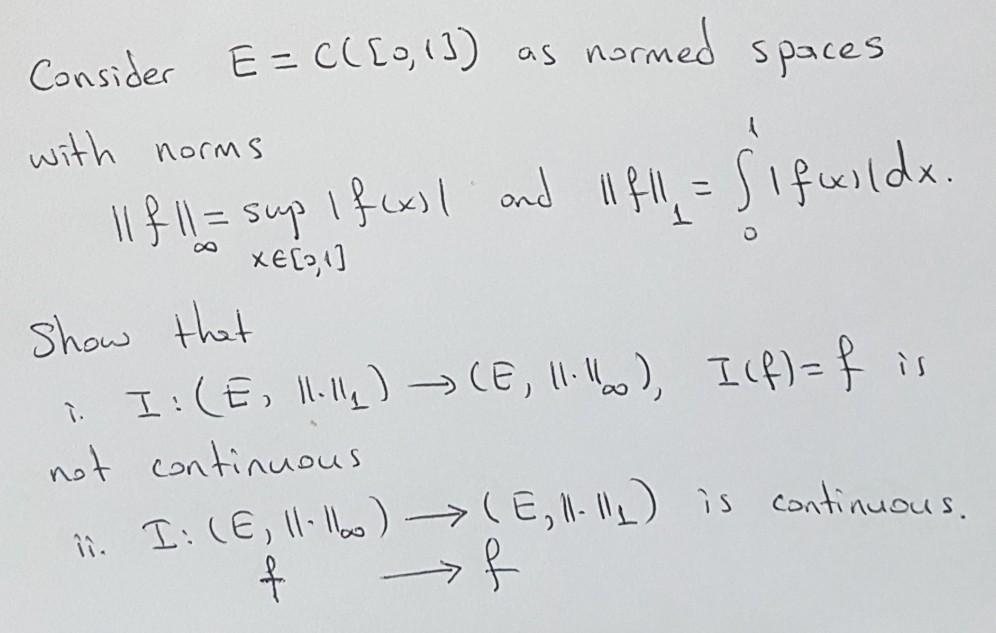 Consider E = C([0,1]) as normed spaces
with norms
||f||_∞ = sup_{x∈[0,1]} |f(x)| and ||f||_1 = ∫_0^1 |f(x)|dx.
Show that
i. I: (E, ||.||_1) → (E, ||.||_∞), I(f) = f is
not continuous
ii. I: (E, ||.||_∞) → (E, ||.||_1) is continuous.
f → f